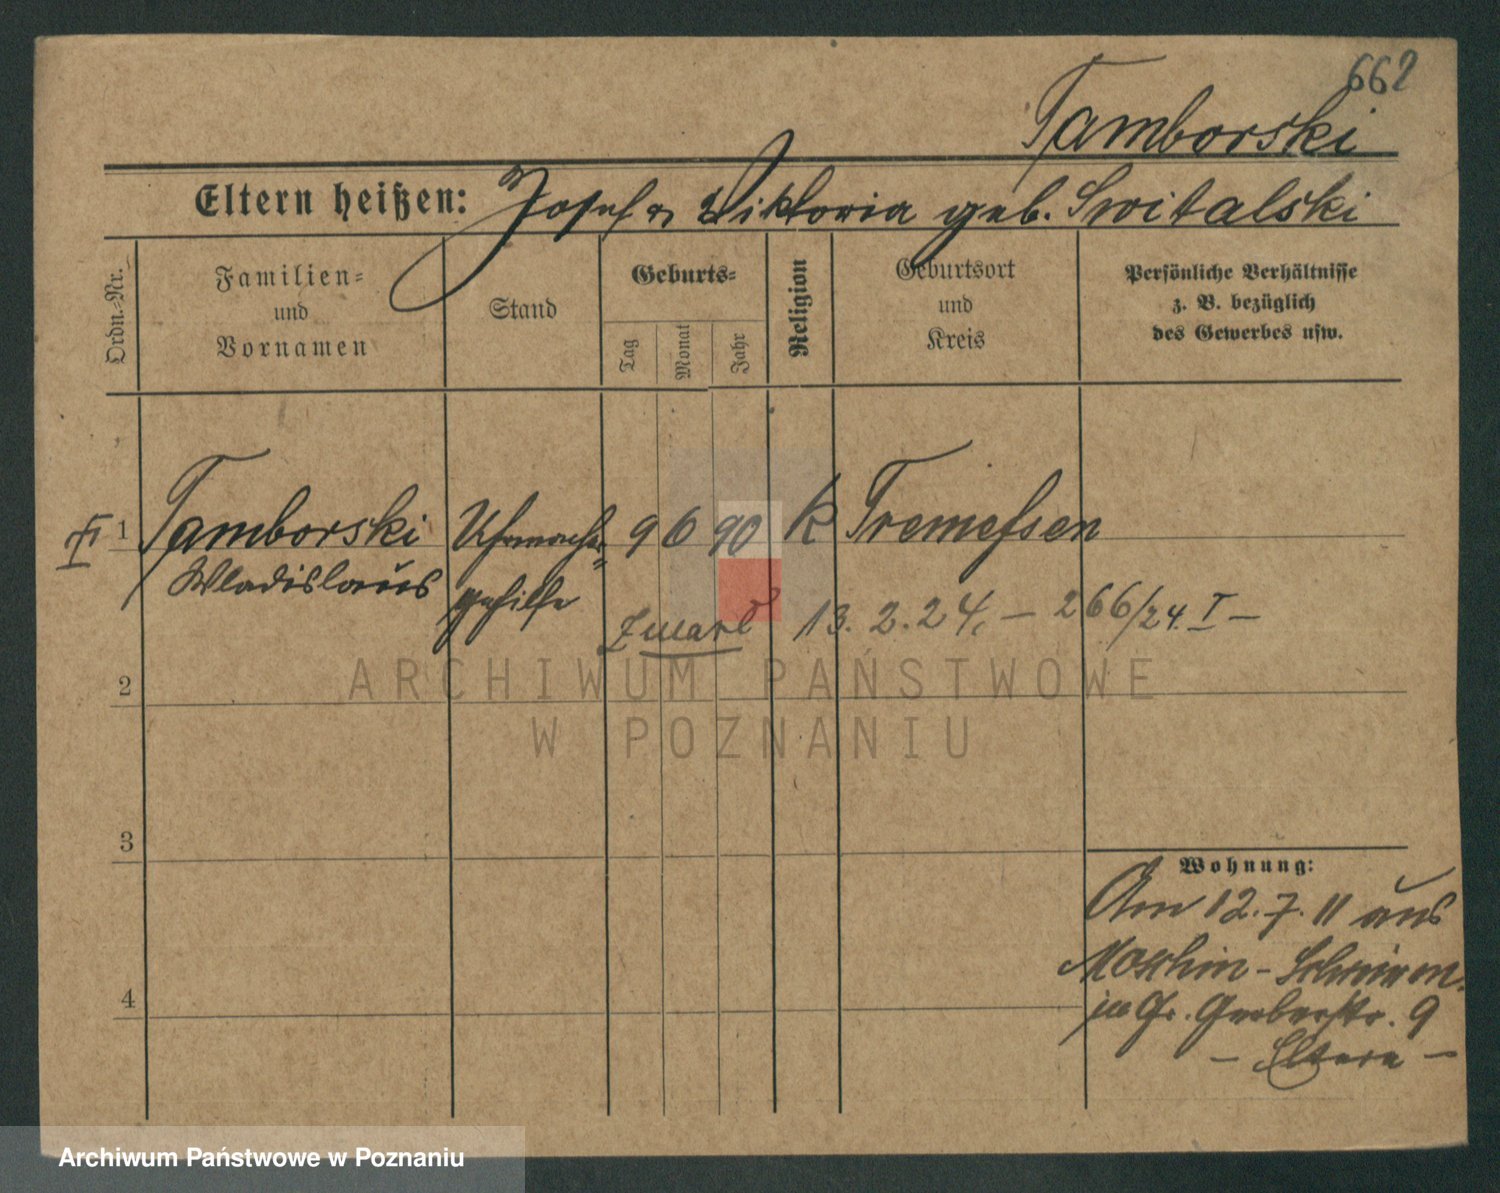 662
Tamborski
Eltern heißen: Josef u. Viktoria geb. Switalski
Ordn.-Nr.
Familien- und Vornamen
Stand
Geburts-
Tag
Monat
Jahr
Religion
Geburtsort und Kreis
Persönliche Verhältnisse z. B. bezüglich des Gewerbes usw.
1 Tamborski Uhrmacher= 9 6 90 k Tremessen
Wladislaus gehilfe
Zmarł 13. 2. 24. – 266/24. I –
2
3
4
Wohnung:
Am 12. 7. 11 aus
Moschin - Schrimm.
in Gr. Gerberstr. 9
– Eltern –
ARCHIWUM PAŃSTWOWE
W POZNANIU
Archiwum Państwowe w Poznaniu